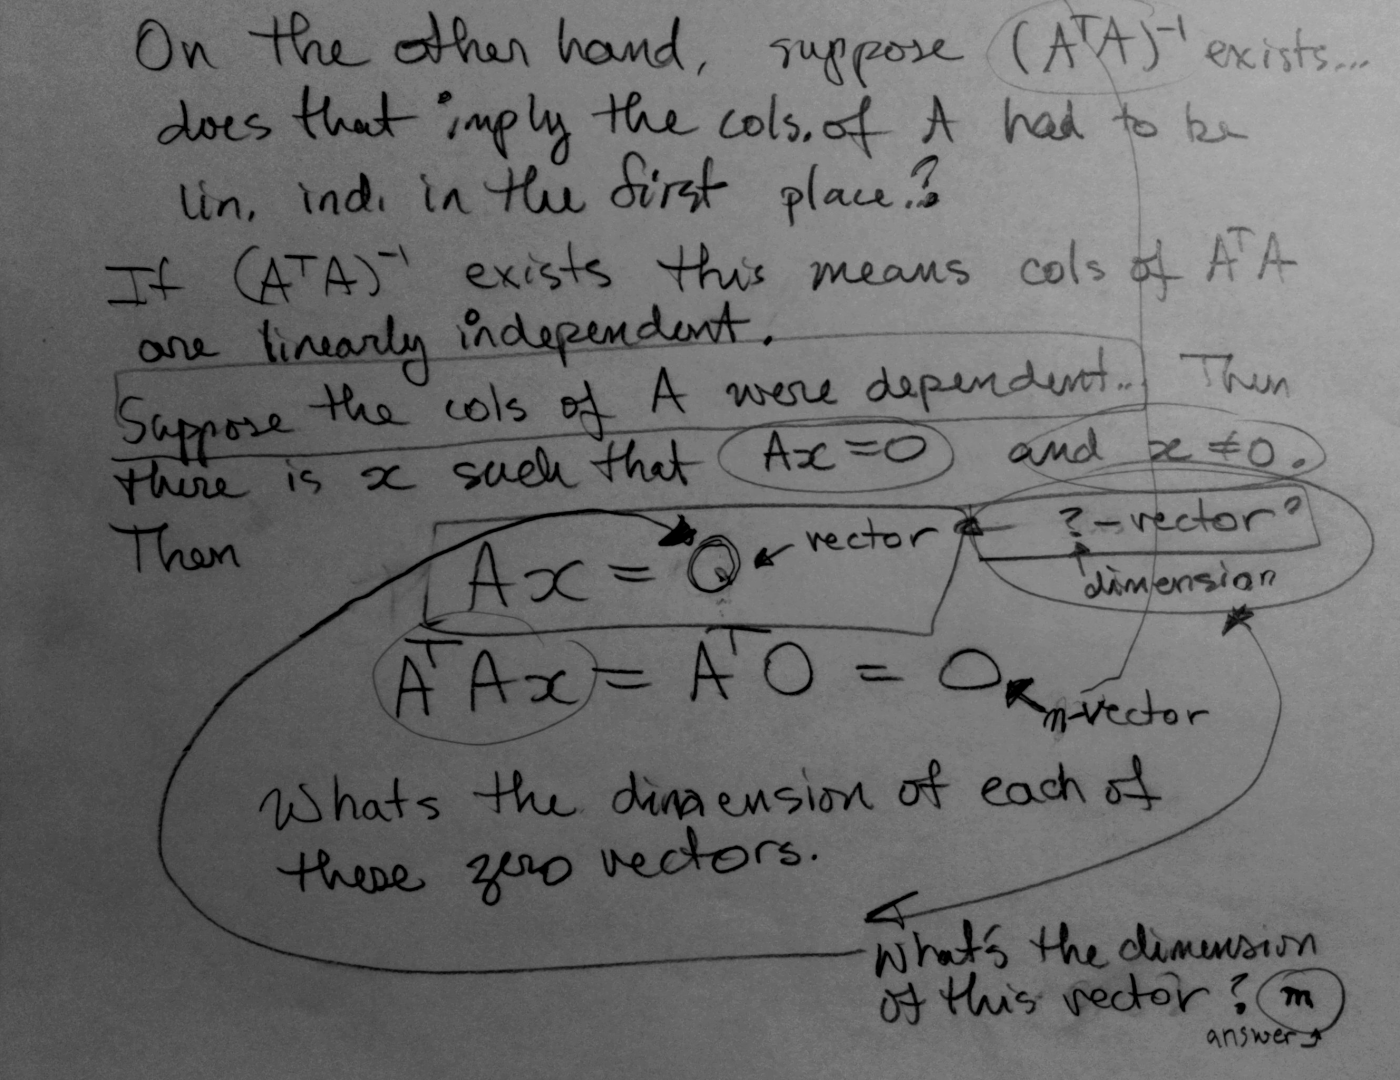 On the other hand, suppose (AᵀA)⁻¹ exists...
does that imply the cols. of A had to be
lin. ind. in the first place?
If (AᵀA)⁻¹ exists this means cols of AᵀA
are linearly independent.
Suppose the cols of A were dependent... Then
there is x such that Ax=0 and x≠0.
Then
Ax = 0 ← vector ← ?-vector?
dimension
AᵀAx = Aᵀ0 = 0
m-vector
Whats the dimension of each of
these zero vectors.
What's the dimension
of this vector? m
answer